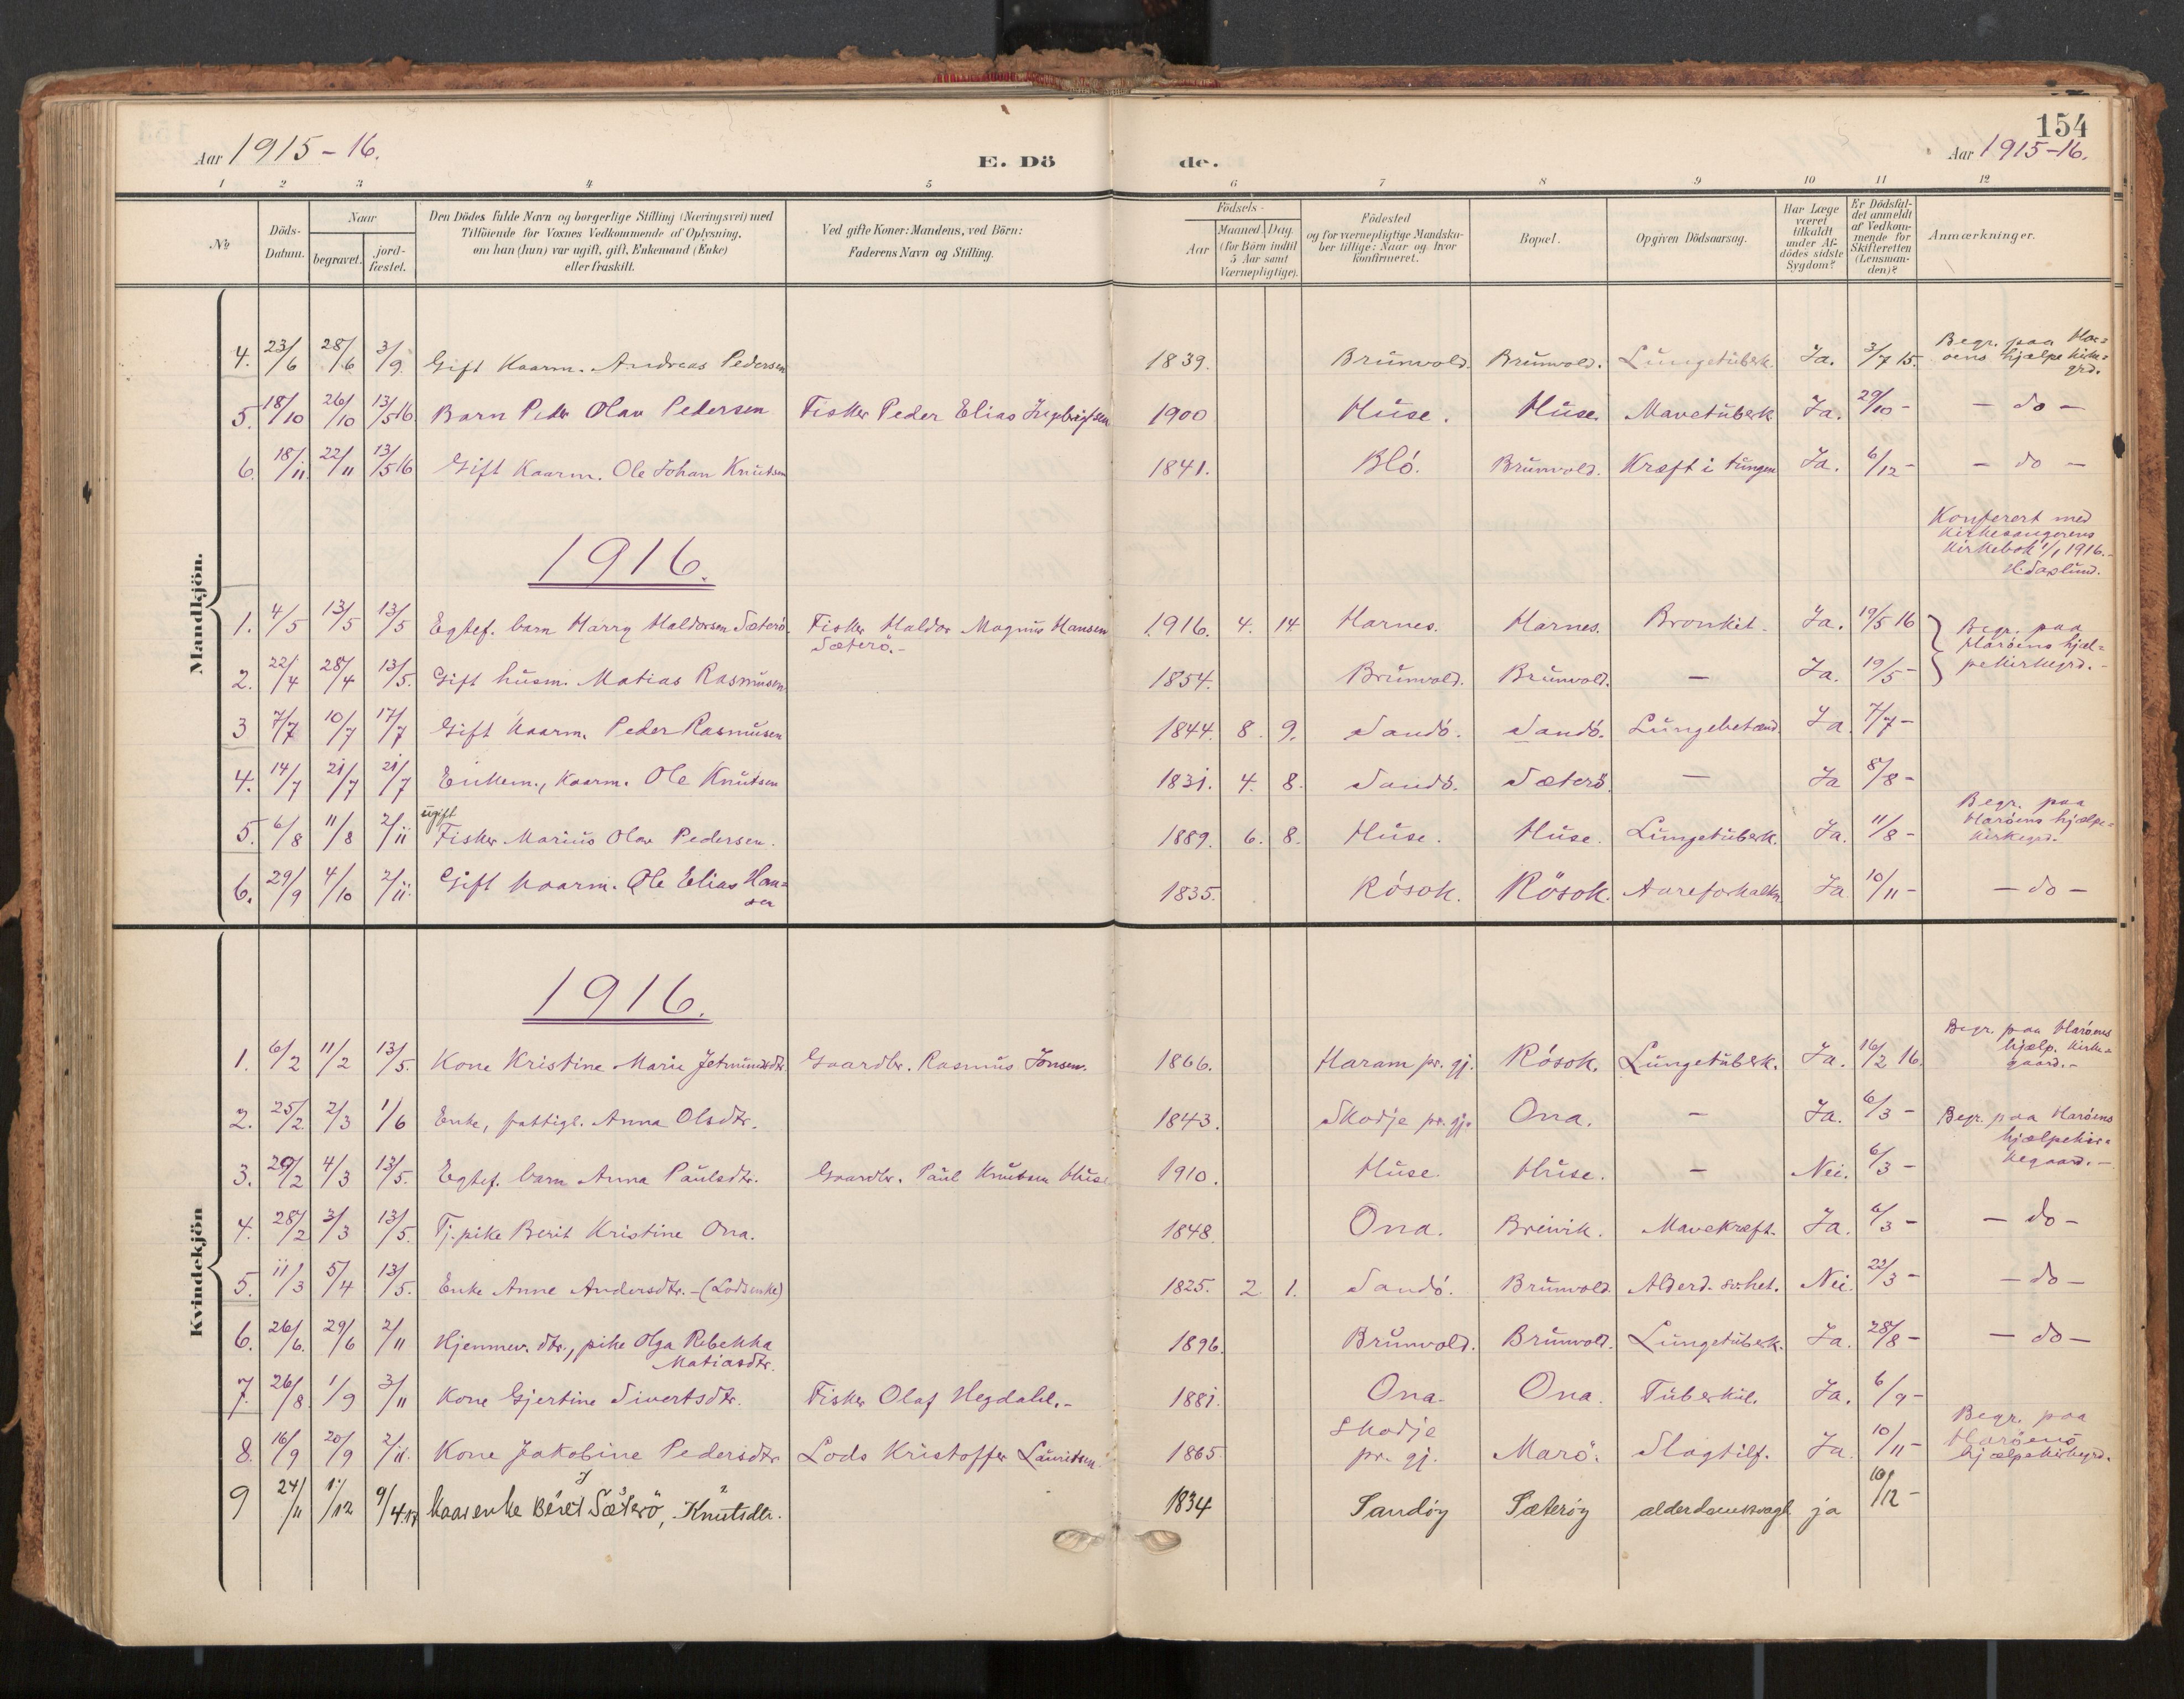 154
Aar 1915-16. E. Dö de. Aar 1915-16.
1 2 3 4 5 6 7 8 9 10 11 12
No
Döds-Datum.
Naar
begravet.
jord-fæstet.
Den Dödes fulde Navn og borgerlige Stilling (Næringsvei) med
Tilföiende for Voxnes Vedkommende af Oplysning,
om han (hun) var ugift, gift, Enkemand (Enke)
eller fraskilt.
Ved gifte Koner: Mandens, ved Börn:
Faderens Navn og Stilling.
Födsels-
Aar
Maaned. Dag.
(for Börn indtil
5 Aar samt
Værnepligtige).
Födested
og for værnepligtige Mandska-
ber tillige: Naar og hvor
konfirmeret.
Bopæl.
Opgiven Dödsaarsag.
Har Læge
været
tilkaldt
under Af-
dödes sidste
Sygdom?
Er Dödsfal-
det anmeldt
af Vedkom-
mende for
Skifteretten
(Lensman-
den)?
Anmærkninger.
Mandkjön.
4. 23/6 28/6 3/9 Gift Kaarm. Andreas Pedersen 1839. Brunvold. Brunvold. Lungetuberk. Ja. 3/7 15. Begr. paa Har-
öens hjælpekirke-
grd.
5. 18/10 26/10 13/5 16 Barn Peder Olav Pedersen Fisker Peder Elias Ingebrigtsen 1900 Huse. Huse. Mavetuberk. Ja. 29/10 - - do -
6. 18/11 22/11 13/5 16 Gift Kaarm. Ole Johan Knutsen 1841. Blö. Brunvold. Kræft i tungen Ja. 6/12 - - do -
Konferert med
kirkesangerens
kirkebok 1/1 1916.-
1916.
1. 4/5 13/5 13/5 Egtef. barn Harry Haldorsen Sæterö. Fisker Haldor Magnus Hansen
Sæterö.- 1916. 4. 14 Harnes. Harnes. Bronkit. Ja. 19/5 16 Begr. paa
Haröens hjæl-
pekirkegrd.-
2. 22/4 28/4 13/5. Gift husm. Matias Rasmusen 1854. Brunvold. Brunvold. - Ja. 19/5 -
3 7/7 10/7 17/7 Gift Kaarm. Peder Rasmusen 1844. 8. 9. Sandö. Sandö. Lungebetænd. Ja 7/7 -
4. 14/7 21/7 21/7 Enkem., Kaarm. Ole Knutsen 1831. 4. 8. Sandö. Sæterö. - Ja 8/8 -
5. 6/8 11/8 2/11 ugift
Fisker Marius Olav Pedersen. 1889. 6. 8. Huse. Huse. Lungetuberk. Ja. 11/8 - Begr. paa
Haröens hjælpe-
kirkegrd.
6. 29/9 4/10 2/11. Gift Kaarm. Ole Elias Han-
sen 1835. Rösok. Rösok. Aareforkalkn. Ja 10/11 - - do -
Kvindekjön
1916.
1. 6/2 11/2 13/5. Kone Kristine Marie Jetmundsdtr. Gaardbr. Rasmus Jonsen. 1866. Haram pr. gj. Rösok. Lungetuberk. Ja. 16/2 16. Begr. paa Haröens
hjælp. kirke-
gaard.-
2. 25/2 2/3 1/6 Enke, fattigl. Anna Olsdtr. 1843. Skodje pr. gj. Ona. - Ja. 6/3 - Begr. paa Haröens
hjælpekir-
kegaard.-
3. 29/2 4/3 13/5. Egtef. barn Anna Paulsdtr. Gaardbr. Paul Knutsen Huse 1910. Huse. Huse. - Nei. 6/3 -
4. 28/2 3/3 13/5. Tj. pike Berit Kristine Ona. 1848. Ona. Breivik. Mavekræft. Ja. 6/3 - - do -
5. 11/3 5/4 13/5. Enke Anne Andersdtr. - (Lodsenke) 1825. 2. 1. Sandö. Brunvold. Alderd. svhet. Nei. 22/3 - - do -
6. 26/6. 29/6 2/11 Hjemmev. dtr., pike Olga Rebekka
Matiasdtr. 1896. Brunvold. Brunvold. Lungetuberk. Ja. 28/8 - - do -
7. 26/8 1/9 3/11 Kone Gjertine Sivertsdtr. Fisker Olaf Hegdahl.- 1881. Ona. Ona. Tuberkul. Ja. 6/9 -
8. 16/9 20/9 2/11. Kone Jakobine Pedersdtr Lods Kristoffer Lauritsen. 1865 Skodje
pr. gj. Marö. Slagtilf. Ja. 10/11 - Begr. paa
Haröens
hjælpekirkegrd.
9 24/11 1/12 9/4.17 Kaarenke Beret Sæterö, Knutsdtr. 1834 Sandöy Sæteröy alderdomssvagh ja 10/12 -